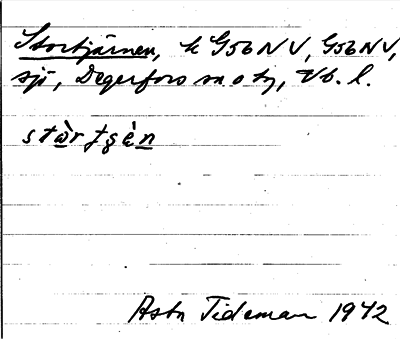 Stortjärnen, k G56NV, G56NV,
sjö, Degerfors sn o tg, Vb. l.
stὼrtşὲn
Astn Tideman 1942